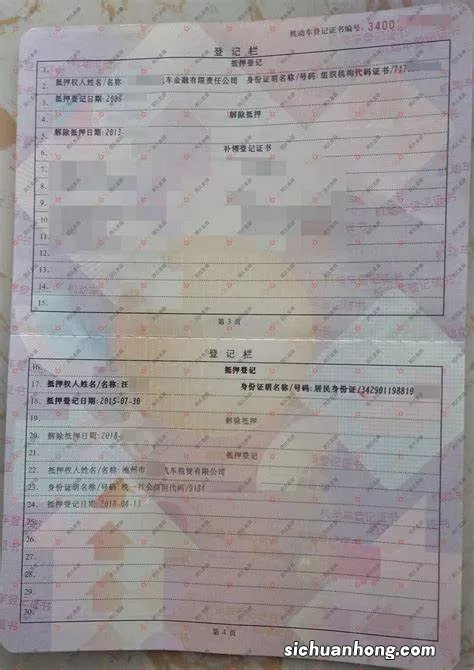 机动车登记证书编号: 3400
登记栏
1. 抵押登记
2. 抵押权人姓名/名称: 汽车金融有限责任公司 身份证明名称/号码: 组织机构代码证书/717
3. 抵押登记日期:2009
4. 解除抵押
5. 解除抵押日期:2013-
6. 补领登记证书
7.
8.
9.
10.
11.
12.
13.
14.
15.
第 3 页
登记栏
16. 抵押登记
17. 抵押权人姓名/名称: 汪 身份证明名称/号码: 居民身份证/342901198810
18. 抵押登记日期:2015-07-30
19. 解除抵押
20. 解除抵押日期:2018-
21. 抵押登记
22. 抵押权人姓名/名称: 池州市 汽车租赁有限公司
23. 身份证明名称/号码: 统一社会信用代码/
24. 抵押登记日期:2018-04-13
25.
26.
27.
28.
29.
30.
第 4 页
sichuanhong.com